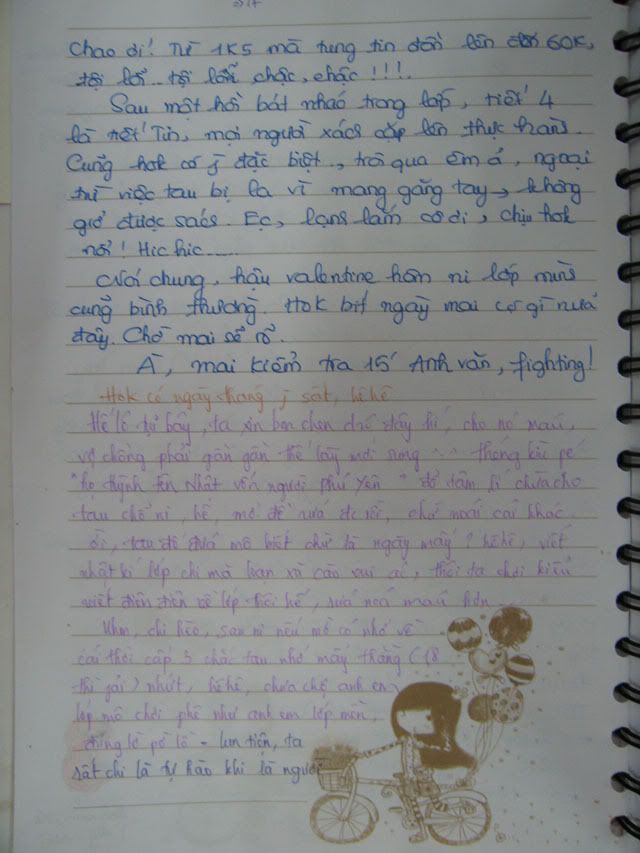 Chao ơi! Từ 1K5 mà tung tin đồn lên đến 60K,
tội lỗi... tội lỗi chậc, chậc!!!.
Sau một hồi bát nháo trong lớp, tiết 4
là tiết Tin, mọi người xách cặp lên thực hành.
Cũng hok có j đặc biệt, trôi qua êm ả, ngoại
trừ việc tau bị la vì mang găng tay → không
giở được sách. Ẹc, lạnh lắm cơ di, chịu hok
nổi! Hic hic......
Nói chung, hậu valentine hôm ni lớp mình
cũng bình thường. Hok bit ngày mai có gì nữa
đây. Chờ mai sẽ rõ.
À, mai kiểm tra 15' Anh văn, fighting!
Hok có ngày tháng j sất, hê hê
Hế lô tụi bây, ta xin bon chen chỗ đây hí, cho nó máu,
vợ chồng phải gần gần thế lày mới sung ^.^ thằng ku pé
"họ Huỳnh tên Nhật vốn người Phú Yên" đồ tâm lí chừa cho
tau chỗ ni, hề, mở đề rứa đc rồi, chừ moái cái khác.
ời, tau đố đứa mô biết chừ là ngày mấy? hêhê, viết
nhật kí lớp chi mà loạn xà cào vui ác, thôi ta chơi kiểu
viết điên điên về lớp thôi hế, rứa nó máu hơn
Uhm, chi hèo, sau ni nếu mổ có nhớ về
cái thời cấp 3 chắc tau nhớ mấy thằng (18
thị gái) nhứt, hêhê, chưa chộ anh em
lớp mô chơi phê như anh em lớp mền,
đúng là pờ lồ - lun tiện, ta
sất chi là tự hào khi là người